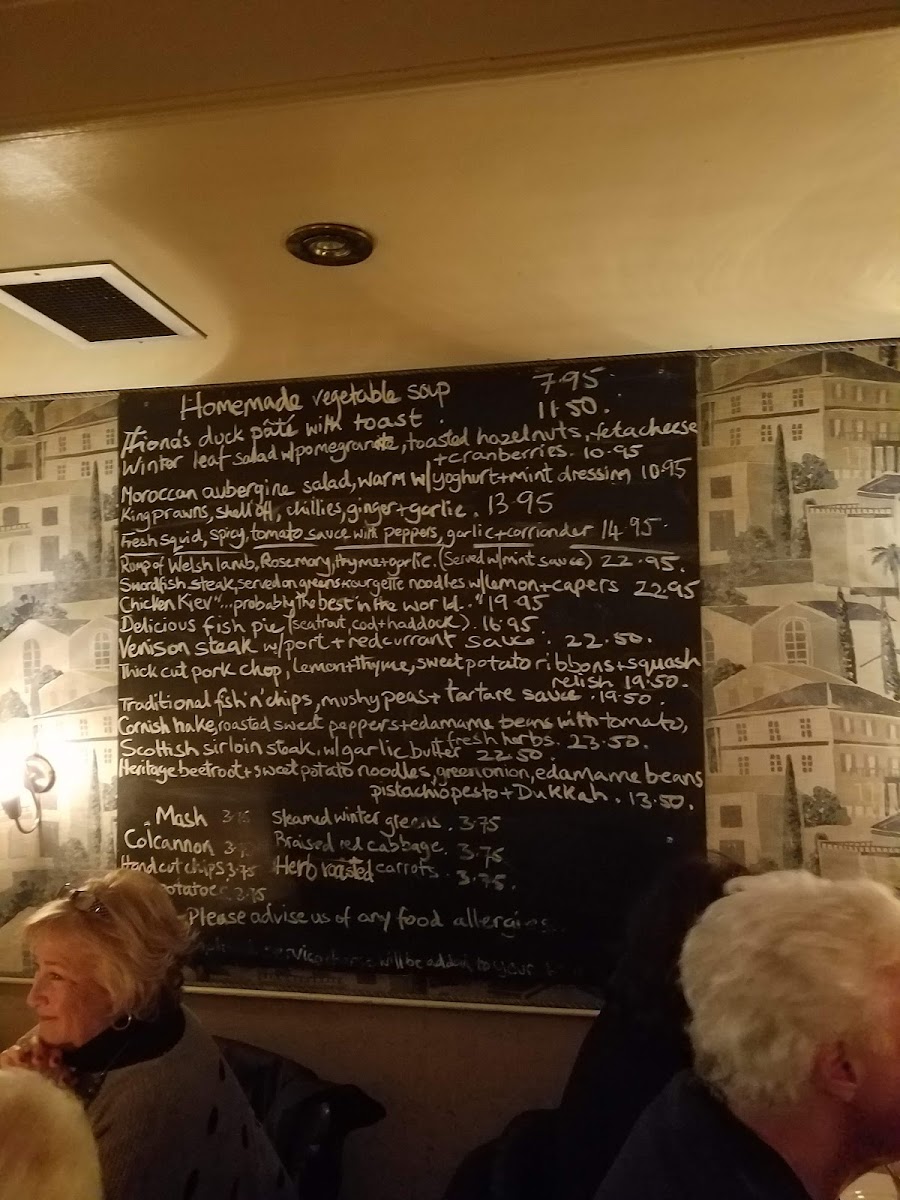 Homemade vegetable soup 7.95
duck pâté with toast 11.50.
Winter leaf salad w/pomegranate, toasted hazelnuts, feta cheese
+cranberries. 10.95
Moroccan aubergine salad, warm w/yoghurt+mint dressing 10.95
King prawns, shell off, chillies, ginger+garlic. 13.95
Fresh squid, spicy, tomato sauce with peppers, garlic+corriander 14.95.
Rump of Welsh lamb, Rosemary, thyme+garlic. (Served w/mint sauce) 22.95.
Swordfish steak, served on greens+courgette noodles w/lemon+capers 22.95
Chicken Kiev "...probably the best in the world.." 19.95
Delicious fish pie (seatrout, cod+haddock). 16.95
Venison steak w/port+redcurrant sauce. 22.50.
Thick cut pork chop, lemon+thyme, sweet potato ribbons+squash
relish 19.50.
Traditional fish 'n' chips, mushy peas+tartare sauce. 19.50.
Cornish hake, roasted sweet peppers+edamame beans with tomato,
+fresh herbs. 23.50.
Scottish sirloin steak, w/garlic butter 22.50.
Heritage beetroot+sweet potato noodles, green onion, edamame beans
pistachio pesto+Dukkah. 13.50.
Mash Steamed winter greens. 3.75
Colcannon Braised red cabbage. 3.75
Hand cut chips 3.75 Herb roasted carrots. 3.75.
3.75
Please advise us of any food allergies.
will be added to your